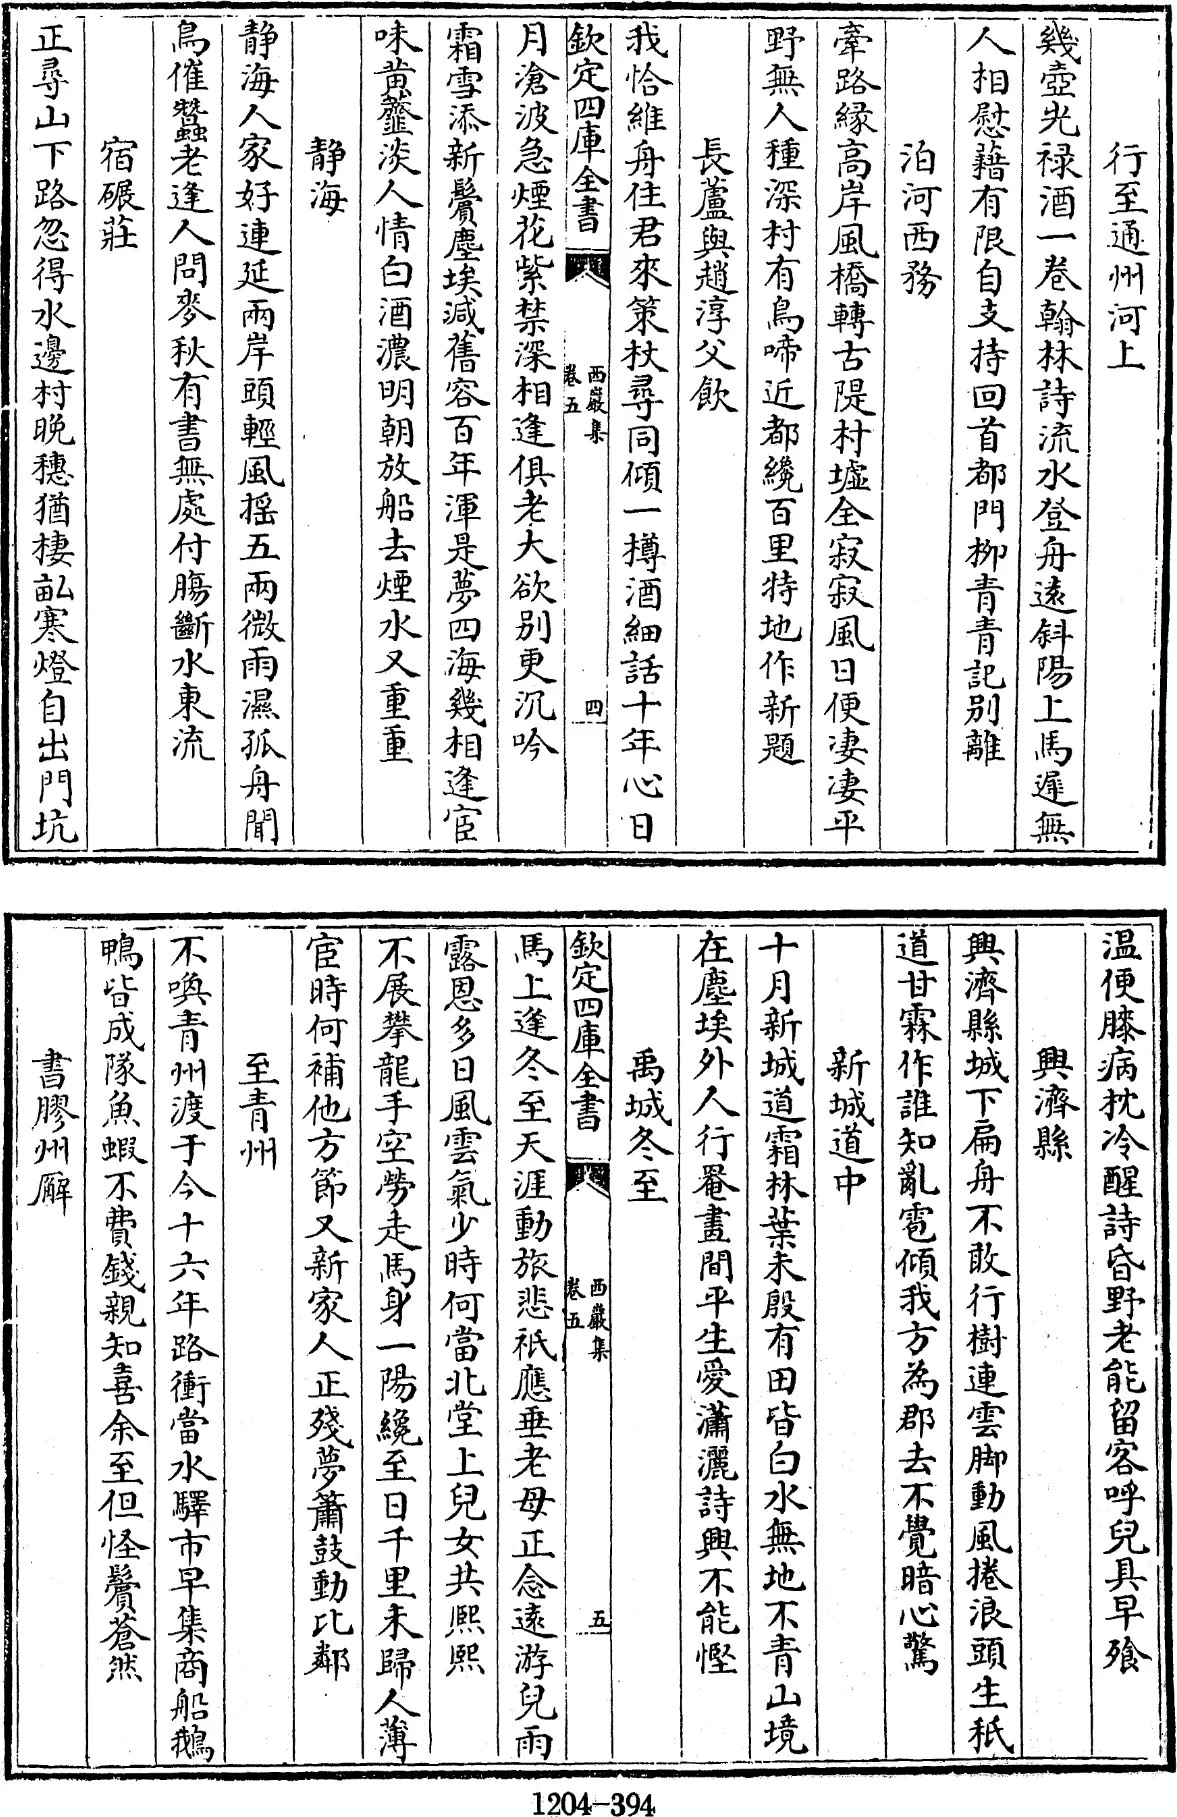 行至通州河上
幾壺光禄酒一巻翰林詩流水登舟逺斜陽上馬遲無
人相慰藉有限自支持回首都門栁青青記别離
泊河西務
牽路縁高岸風橋轉古隄村墟全寂寂風日便凄凄平
野無人種深村有鳥啼近都纔百里特地作新題
長蘆與趙淳父飲
我恰維舟住君來策杖尋同傾一樽酒細話十年心日
欽定四庫全書
西巖集
卷五
四
月滄波急煙花紫禁深相逢俱老大欲别更沉吟
霜雪添新鬢塵埃減舊容百年渾是夢四海幾相逢宦
味黄虀淡人情白酒濃明朝放船去煙水又重重
静海
静海人家好連延兩岸頭輕風揺五兩微雨濕孤舟聞
鳥催蠶老逢人問麥秋有書無處付腸斷水東流
宿碾莊
正尋山下路忽得水邊村晚穗猶棲畝寒燈自出門坑
温便膝病枕冷醒詩昏野老能留客呼兒具早飱
興濟縣
興濟縣城下扁舟不敢行樹連雲脚動風捲浪頭生秖
道甘霖作誰知亂雹傾我方為郡去不覺暗心驚
新城道中
十月新城道霜林葉未殷有田皆白水無地不青山境
在塵埃外人行罨畫間平生愛瀟灑詩興不能慳
禹城冬至
欽定四庫全書
西巖集
卷五
五
馬上逢冬至天涯動旅悲祇應垂老母正念逺游兒雨
露恩多日風雲氣少時何當北堂上兒女共熈熈
不展攀龍手空勞走馬身一陽纔至日千里未歸人薄
宦時何補他方節又新家人正殘夢簫鼓動比鄰
至青州
不喚青州渡于今十六年路衝當水驛市早集商船鵝
鴨皆成隊魚蝦不費錢親知喜余至但怪鬢蒼然
書膠州廨
1204-394